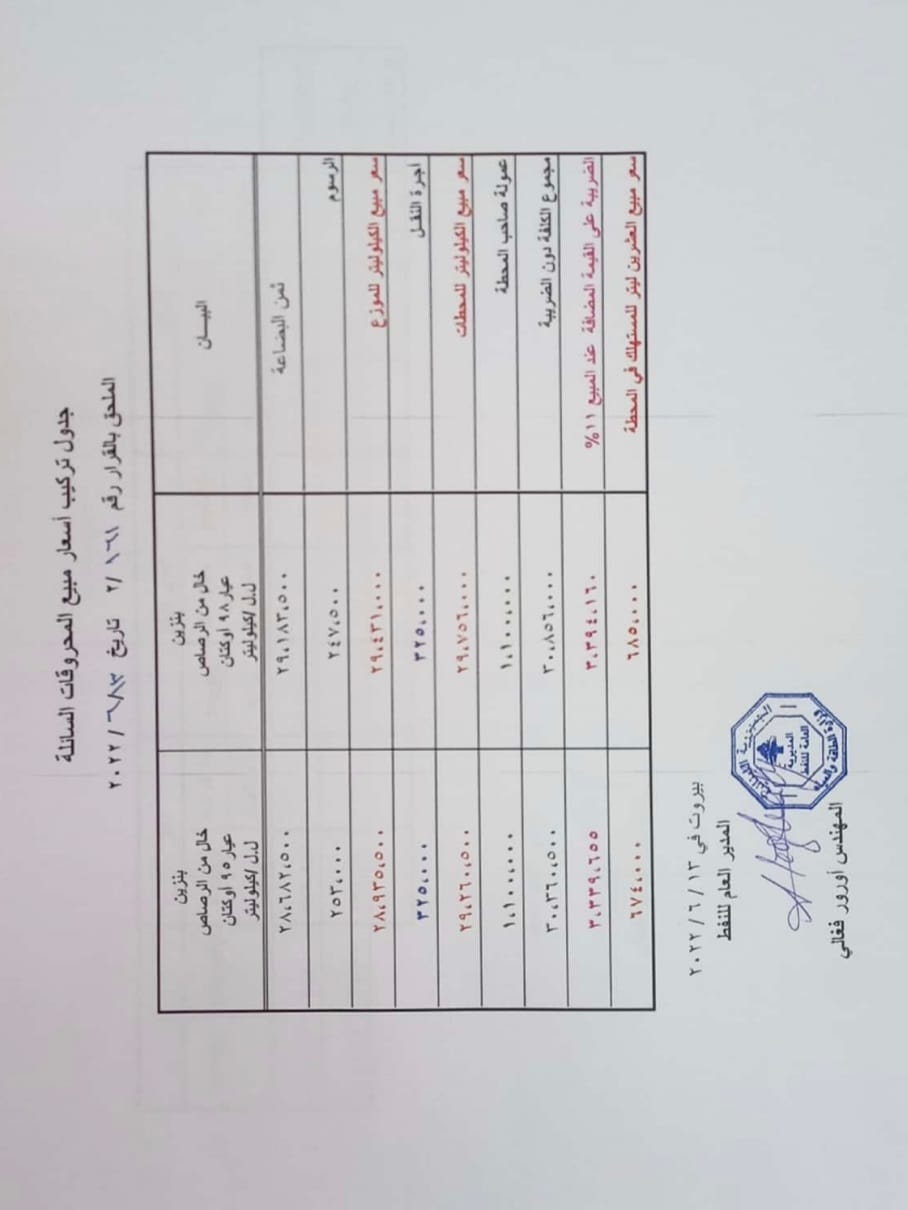 جدول تركيب أسعار مبيع المحروقات السائلة
الملحق بالقرار رقم ١٦١ /٢ تاريخ ١٣/٦/٢٠٢٢
البيــان
بنزين
خال من الرصاص
عيار ٩٨ أوكتان
ل.ل/كيلوليتر
بنزين
خال من الرصاص
عيار ٩٥ أوكتان
ل.ل/كيلوليتر
ثمن البضاعة ٢٩،١٨٣،٥٠٠ ٢٨،٦٨٢،٥٠٠
الرسوم ٢٤٧،٥٠٠ ٢٥٣،٠٠٠
سعر مبيع الكيلوليتر للموزع ٢٩،٤٣١،٠٠٠ ٢٨،٩٣٥،٥٠٠
اجرة النقل ٣٢٥،٠٠٠ ٣٢٥،٠٠٠
سعر مبيع الكيلوليتر للمحطات ٢٩،٧٥٦،٠٠٠ ٢٩،٢٦٠،٥٠٠
عمولة صاحب المحطة ١،١٠٠،٠٠٠ ١،١٠٠،٠٠٠
مجموع الكلفة دون الضريبة ٣٠،٨٥٦،٠٠٠ ٣٠،٣٦٠،٥٠٠
الضريبة على القيمة المضافة عند المبيع ١١% ٣،٣٩٤،١٦٠ ٣،٣٣٩،٦٥٥
سعر مبيع العشرين ليتر للمستهلك في المحطة ٦٨٥،٠٠٠ ٦٧٤،٠٠٠
بيروت في ١٣ / ٦ / ٢٠٢٢
المدير العام للنفط
الجمهورية اللبنانية
المديرية
العامة للنفط
وزارة الطاقة والمياه
المهندس أورور فغالي